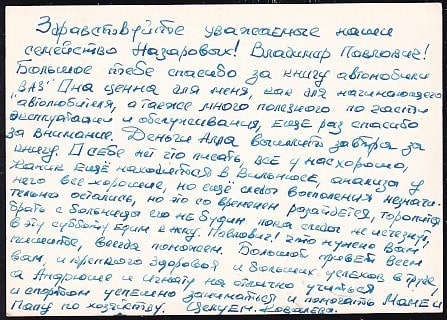 Здравствуйте уважаемые наши
семейство Назаровых! Владимир Павлович!
Большое тебе спасибо за книгу автомобили
"ВАЗ" Она ценна для меня, как для начинающего
автолюбителя, а также много полезного по части
эксплуатации и обслуживания, ещё раз спасибо
за внимание. Деньги Алла вышлит завтра за
книгу. О себе нечего писать, всё у нас хорошо,
ещё находится в Вильнюсе, анализы у
него все хорошие, но ещё следы воспаления незначи-
тельно остались, но это со временем розайдётся, торопится
брать с больница его не будим пока следы не исчезнут,
в эту субботу едим к нему. Павлович! что нужно Вам
пишите, всегда поможем. Большой привет всем
вам, и крепкого здоровья и больших успехов в труде,
а Андрюше и Игнату на отлично учиться
и спортом успешно заниматься и помогать Маме и
Папе по хозяйству. Целуем. Ковалёва.